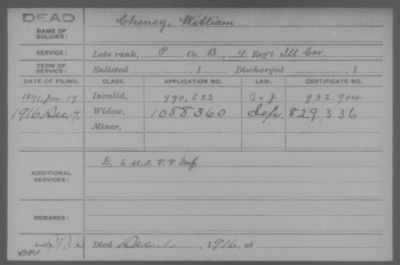 DEAD
NAME OF SOLDIER: Cheney, William
SERVICE: Late rank, P Co. B, 4 Reg't Ill Cav.
TERM OF SERVICE: Enlisted , 1 Discharged , 1
DATE OF FILING. CLASS. APPLICATION NO. LAW. CERTIFICATE NO.
1891, Jan 19 Invalid, 990,622 G & J 932,904
1916, Dec. 7, Widow, 1088360 Sep. 829336
Minor,
ADDITIONAL SERVICES: D, 6 U.S. V. V. Inf
REMARKS:
Died Dec. 1, 1916, at